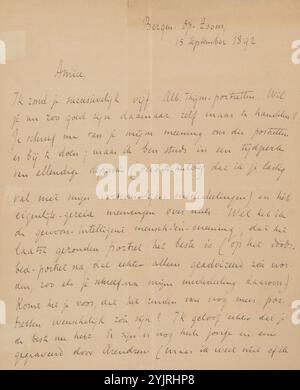 Bergen-op-Zoom,
15 September 1892
Amice,
Ik zond je successievelijk vijf Alb. Thijm-portretten. Wil
je nu zoo goed zijn daarmede zelf maar te handelen?
Je schreef me van je mijn meening om die portretten
er bij te doen; maar ik ben steeds in een tijdperk
van ellendige
val met mijn (mededeelingen) en heb
eigenlijk-gezeid meeningen over niets. Wel heb ik
de gewoon-intelligente-menschen-meening, dat het
laatst gezonden portret het beste is (op het dood-
bed-portret na, dat echter alleen geadviseerd zou wor-
den, zoo als je schreef na mijn mededeeling daarover)
Komt het je voor, dat het zenden van nog meer por-
tretten wenschelijk zou zijn? Ik geloof echter dat je
de beste nu hebt. Er zijn er nog heele jonge en een
gegraveerd door Arendzen (maar ik weet niet of ik
alamy
Image ID: 2YJRHP8
www.alamy.com